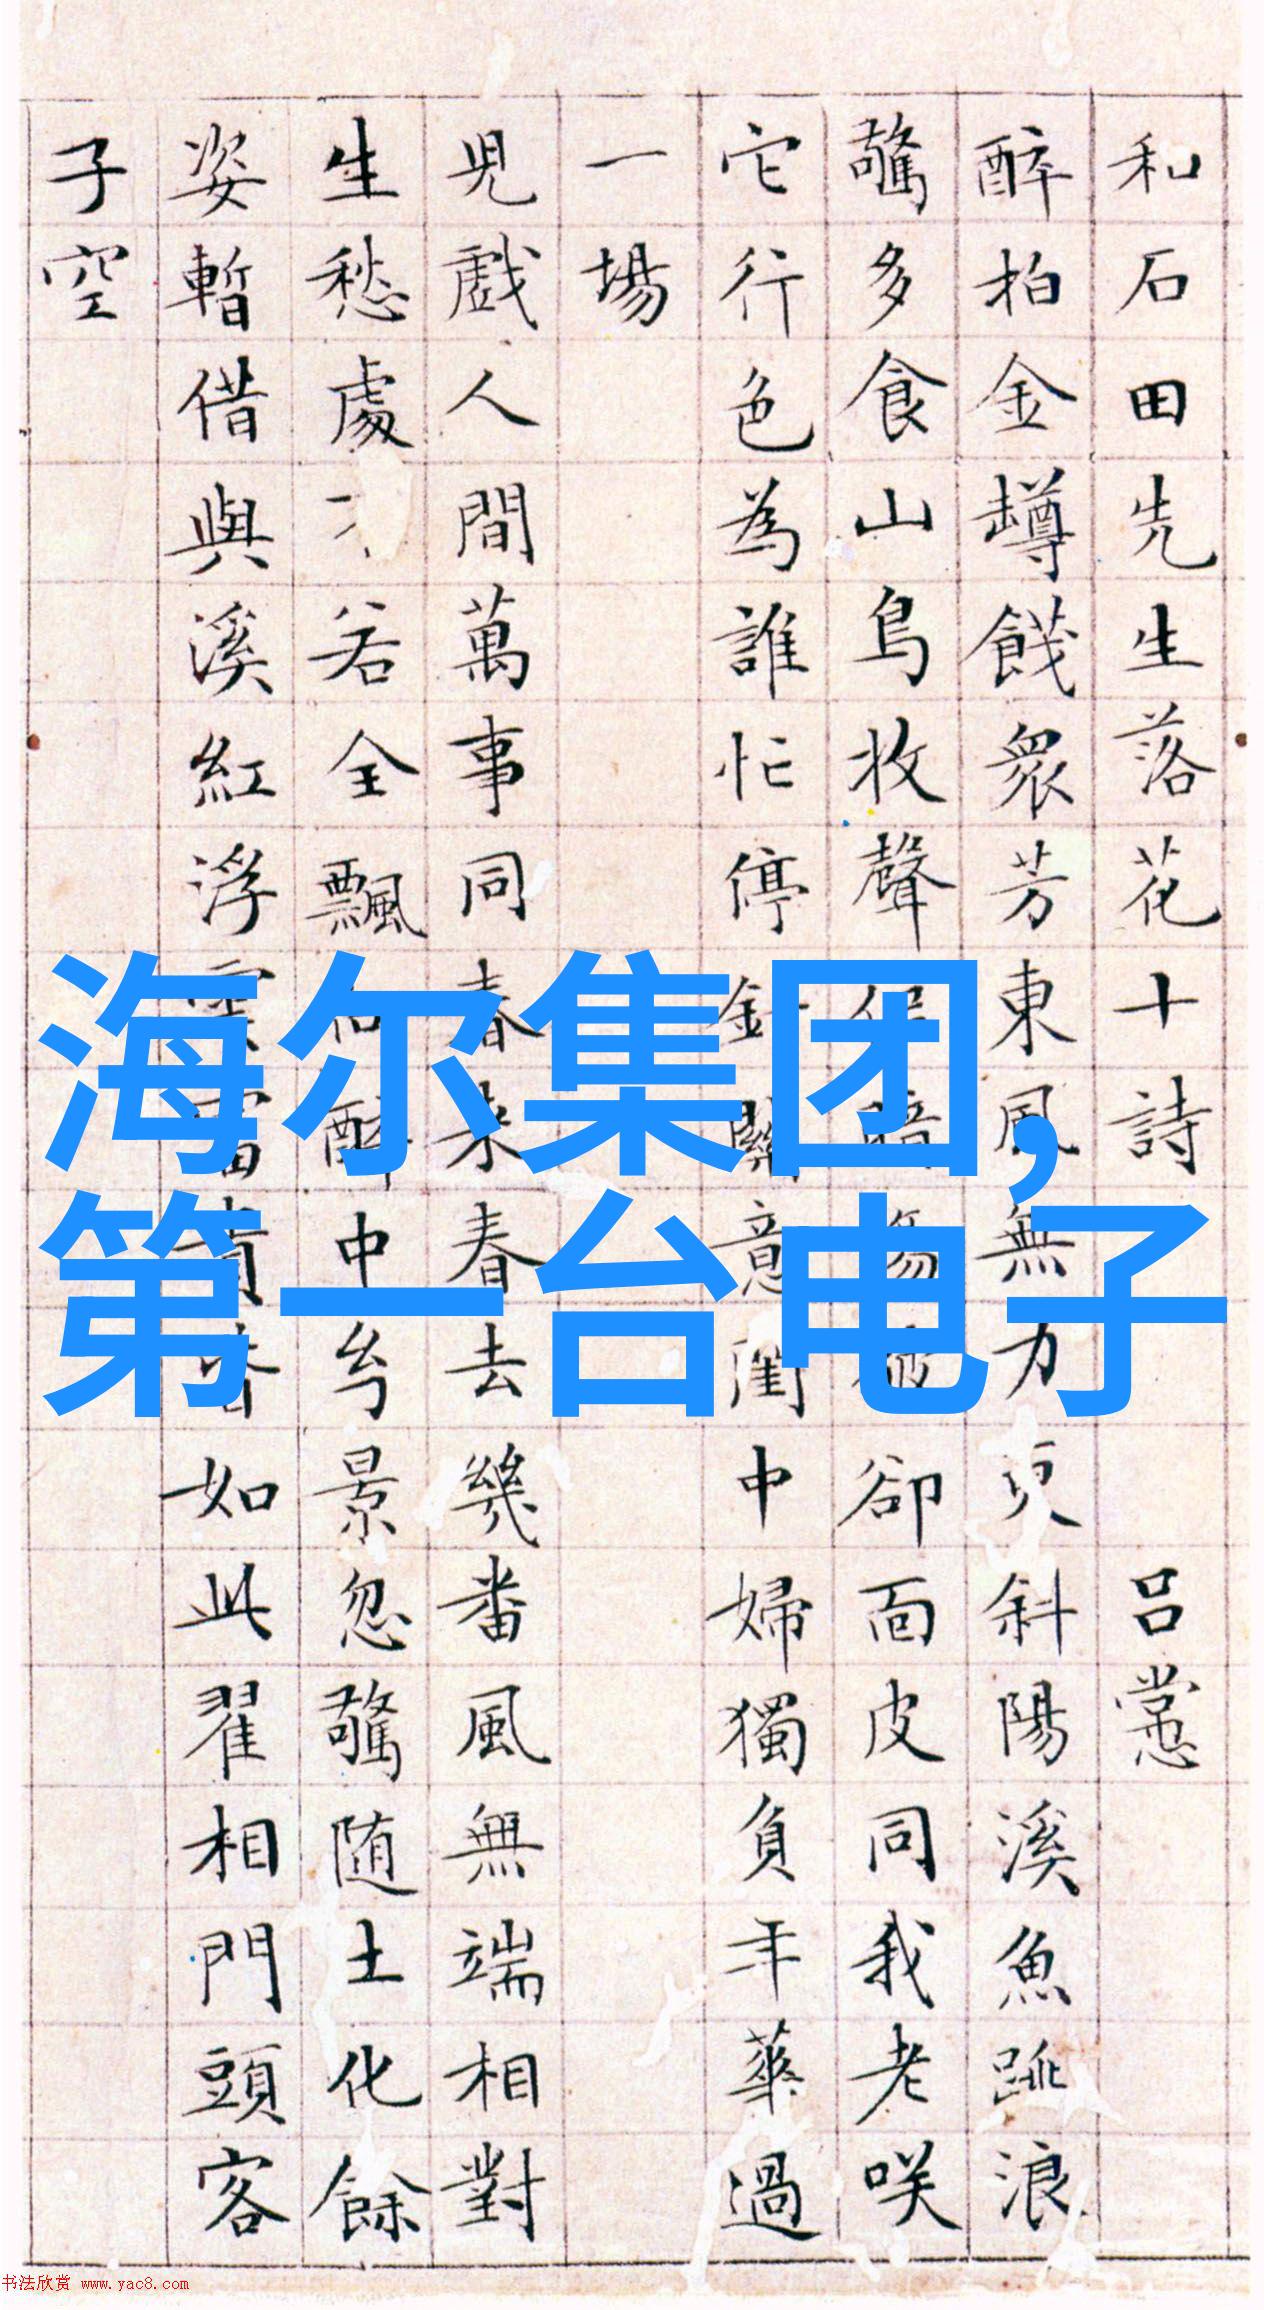 和石田先生落花十詩 呂㦂
醉拍金罇餞衆芳東風無力 斜陽溪魚跳浪
驚多食山鳥收聲 卻面皮同我老咲
它行色為誰忙停針 意 中婦獨負年華過
一場
児戲人間萬事同春来春去幾番風無端相對
生愁處 若全飄 醉中兮景忽驚随土化餘
姿暫借與溪紅浮 如此翟相門頭客
子空
海尔集团,
第一台电子
书法欣赏 www.yac8.com